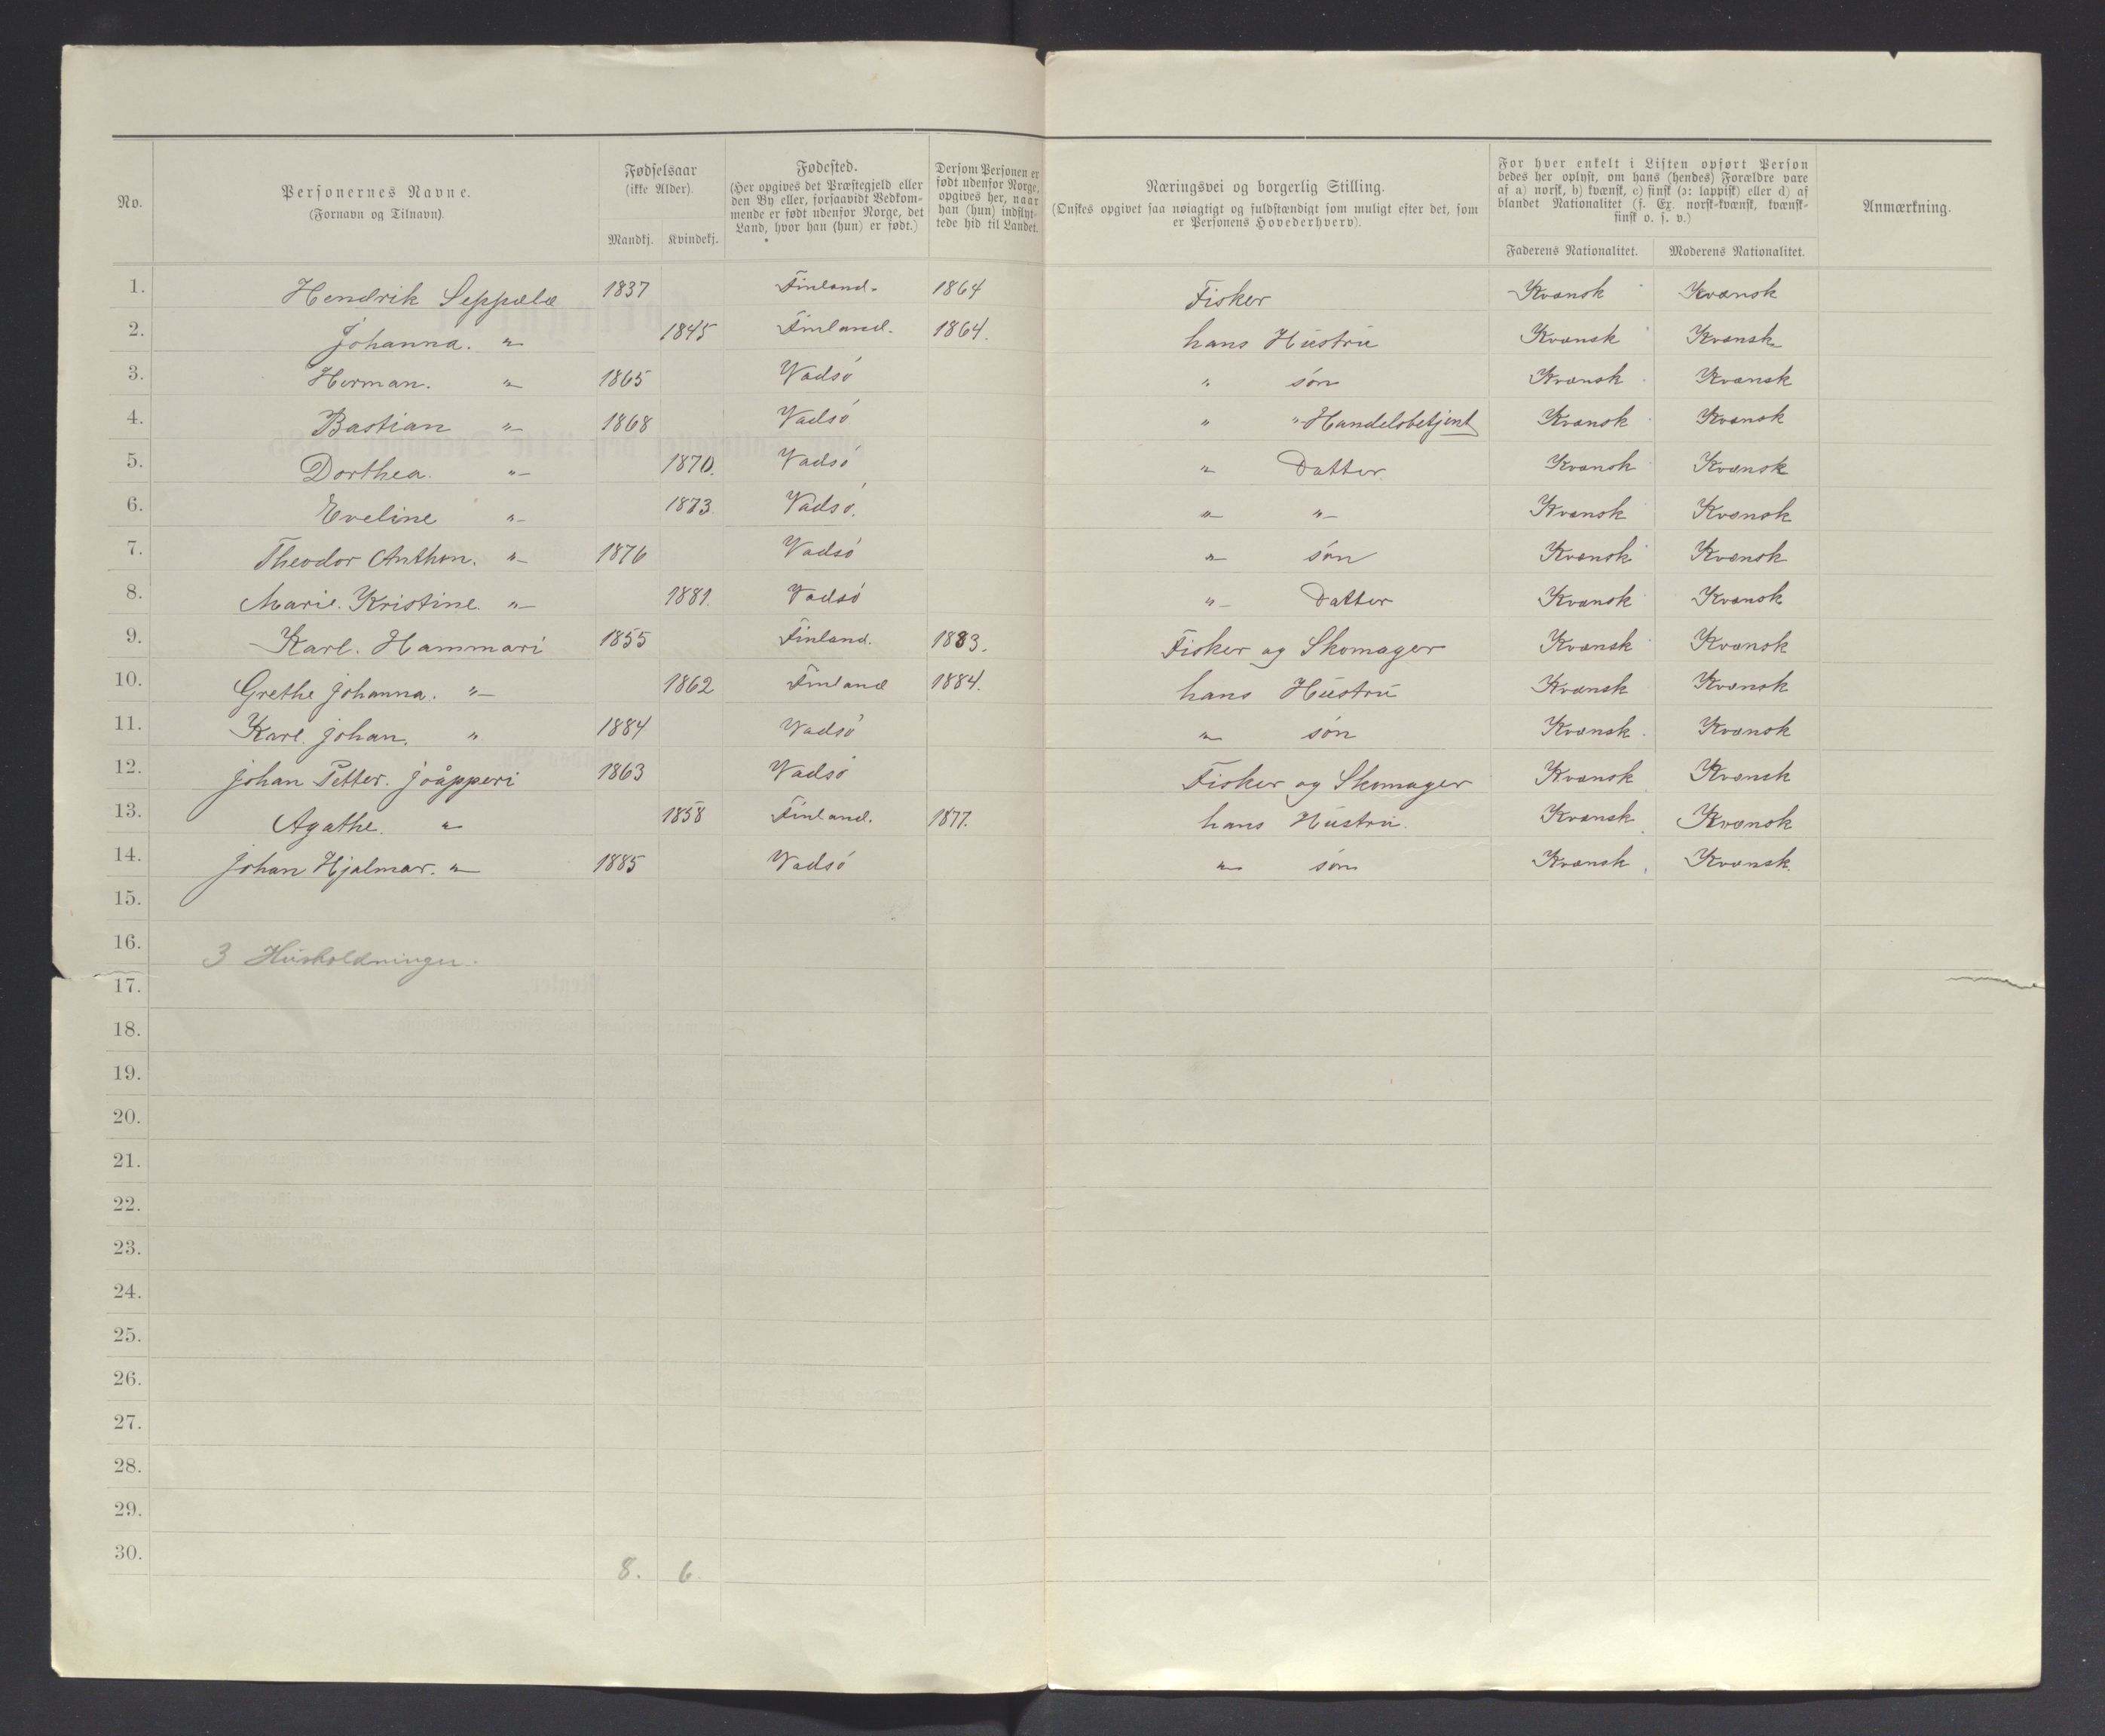 No.
Personernes Navne.
(Fornavn og Tilnavn).
Fødselsaar
(ikke Alder).
Mandkj. Kvindekj.
Fødested.
(Her opgives det Præstegjeld eller
den By eller, forsaavidt Vedkom-
mende er født udenfor Norge, det
Land, hvor han (hun) er født.)
Dersom Personen er
født udenfor Norge,
opgives her, naar
han (hun) indflyt-
tede hid til Landet.
Næringsvei og borgerlig Stilling.
(Ønskes opgivet saa nøiagtigt og fuldstændigt som muligt efter det, som
er Personens Hovederhverv).
For hver enkelt i Listen opført Person
bedes her oplyst, om hans (hendes) Forældre vare
af a) norsk, b) kvænsk, c) finsk (ɔ: lappisk) eller d) af
blandet Nationalitet (f. Ex. norsk-kvænsk, kvænsk-
finsk o. s. v.)
Faderens Nationalitet. Moderens Nationalitet.
Anmærkning.
1. Hendrik Seppælæ 1837 Finland. 1864 Fisker Kvænsk Kvænsk
2. Johanna. " 1845 Finland. 1864. hans Hustru Kvænsk Kvænsk
3. Herman. " 1865 Vadsö " sön Kvænsk Kvænsk
4. Bastian " 1868 Vadsö " " Handelsbetjent Kvænsk Kvænsk
5. Dorthea. " 1870. Vadsö " Datter Kvænsk Kvænsk
6. Eveline " 1873. Vadsö. " " Kvænsk Kvænsk
7. Theodor Anthon. " 1876 Vadsö " sön Kvænsk Kvænsk
8. Marie. Kristine. " 1881. Vadsö " Datter Kvænsk Kvænsk
9. Karl. Hammari 1855 Finland. 1883. Fisker og Skomager Kvænsk Kvænsk
10. Grethe Johanna. " 1862 Finland 1884. hans Hustru Kvænsk Kvænsk
11. Karl. Johan. " 1884 Vadsö " sön Kvænsk Kvænsk
12. Johan Petter. Joåpperi 1863 Vadsö Fisker og Skomager Kvænsk Kvænsk
13. Agathe. " 1858 Finland. 1877. hans Hustru. Kvænsk Kvænsk
14. Johan Hjalmar. " 1885 Vadsö " sön Kvænsk Kvænsk.
15.
16. 3 Husholdninger.
17.
18.
19.
20.
21.
22.
23.
24.
25.
26.
27.
28.
29.
30.
8. 6